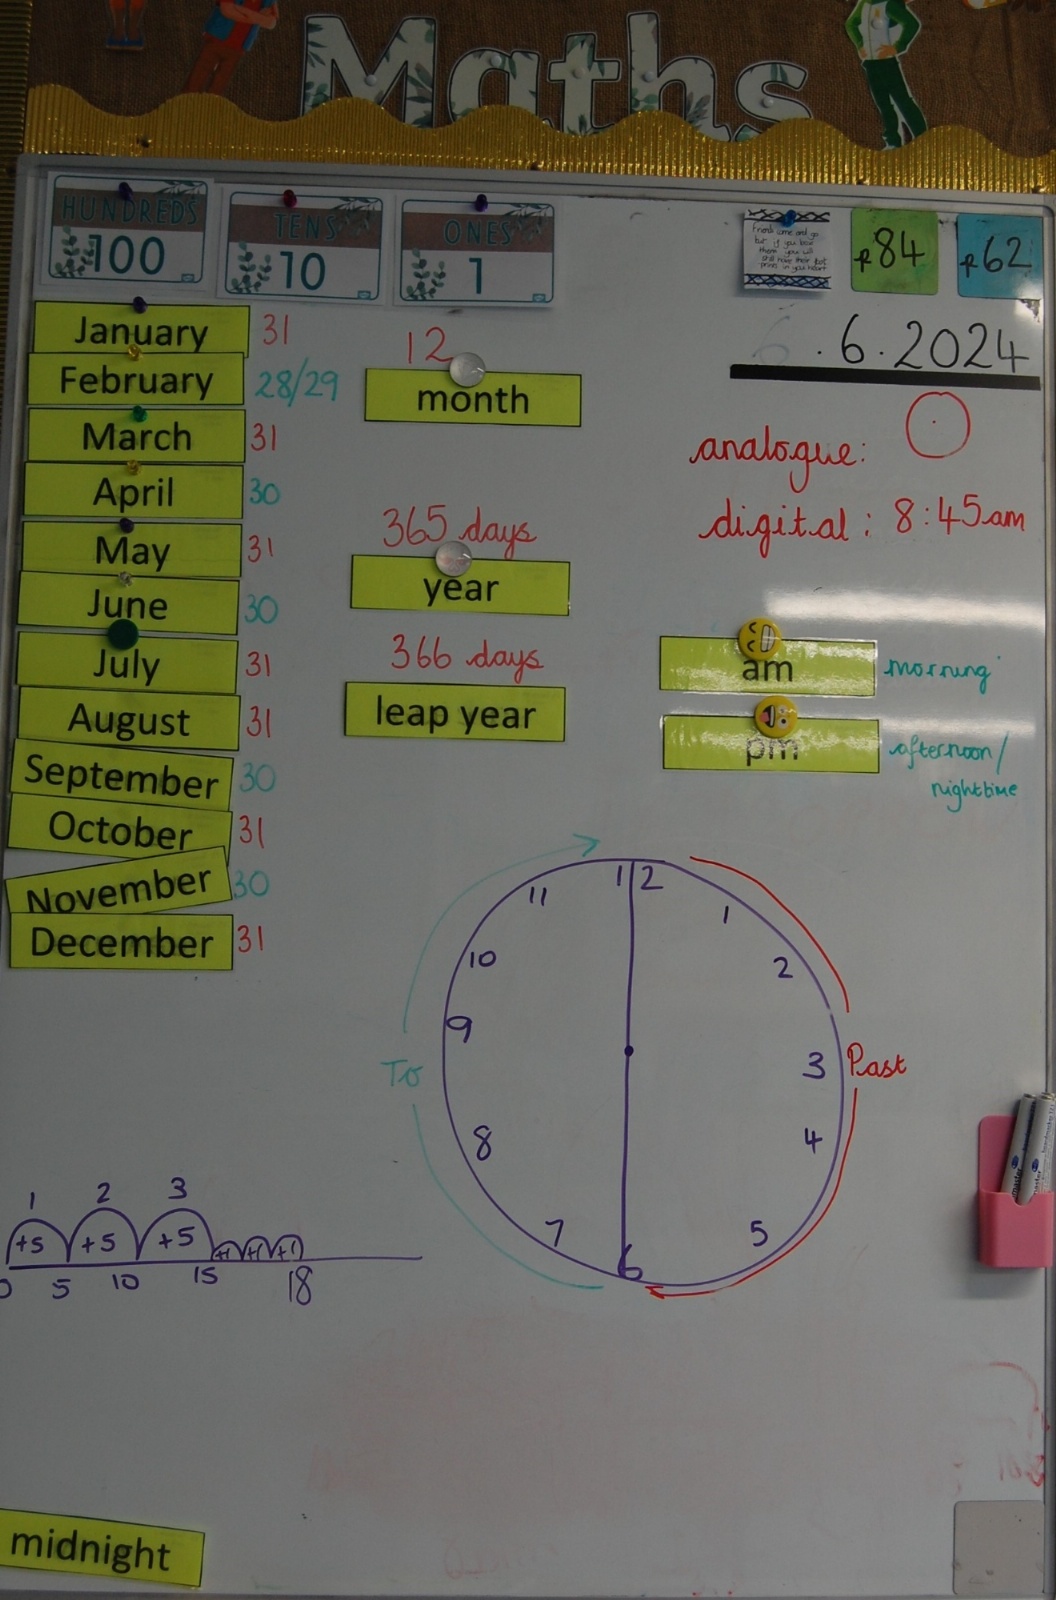 Maths
HUNDREDS
100
TENS
10
ONES
1
Friends come and go
but if you
them you will
still have their foot
prints in your heart
p84
p62
6.6.2024
January 31
February 28/29
March 31
April 30
May 31
June 30
July 31
August 31
September 30
October 31
November 30
December 31
12
month
365 days
year
366 days
leap year
analogue:
digital: 8:45am
am morning
pm afternoon/
nighttime
12
11
1
10
2
9
3
8
4
7
5
6
To
Past
1 2 3
+5 +5 +5 +1 +1 +1
0 5 10 15 18
midnight